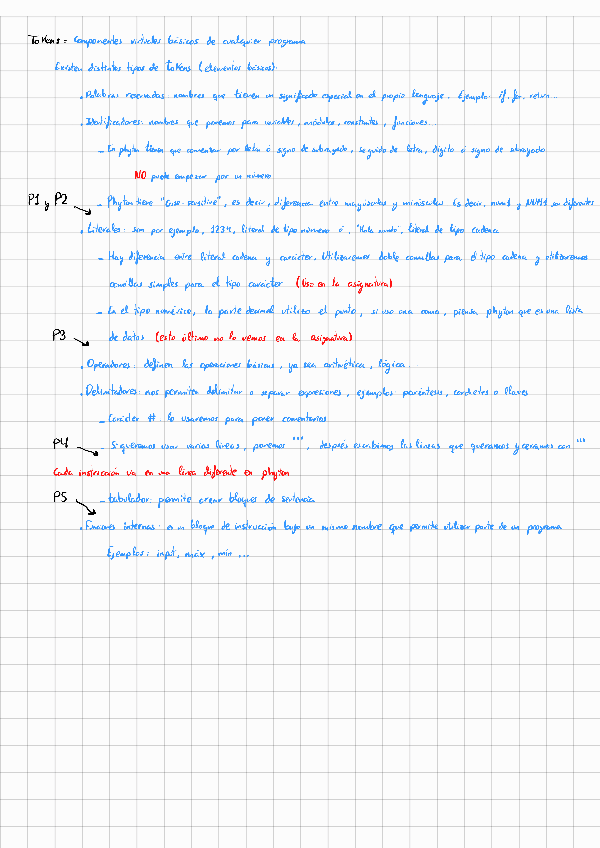 Tokens = Componentes visibles básicos de cualquier programa
Existen distintos tipos de Tokens (elementos básicos):
. Palabras reservadas: nombres que tienen un significado especial en el propio lenguaje. Ejemplo: if, for, return...
. Identificadores: nombres que ponemos para variables, módulos, constantes, funciones...
- En phyton tienen que comenzar por letra o signo de subrayado, seguido de letra, dígito o signo de subrayado
NO puede empezar por un número
P1 y P2
- Phyton tiene "Case-sensitive", es decir, diferencia entre mayúsculas y minúsculas Es decir, num1 y NUM1 son diferentes
. Literales: son por ejemplo, 1234, literal de tipo número o, "Hola mundo", literal de tipo cadena
- Hay diferencia entre literal cadena y carácter. Utilizaremos doble comillas para el tipo cadena y utilizaremos
comillas simples para el tipo carácter (Uso en la asignatura)
- En el tipo numérico, la parte decimal utilizo el punto, si uso una coma, piensa phyton que es una lista
P3
de datos (esto último no lo vemos en la asignatura)
. Operadores: definen las operaciones básicas, ya sea aritmética, lógica...
. Delimitadores: nos permiten delimitar o separar expresiones, ejemplos paréntesis, corchetes o llaves
- Carácter #: lo usaremos para poner comentarios
P4
- Si queremos usar varias líneas, ponemos """, después escribimos las líneas que queramos y cerramos con """
Cada instrucción va en una línea diferente en phyton
P5
- tabulador: permite crear bloques de sentencia
. Funciones internas: es un bloque de instrucción bajo un mismo nombre que permite utilizar parte de un programa
Ejemplos: input, máx, mín ...